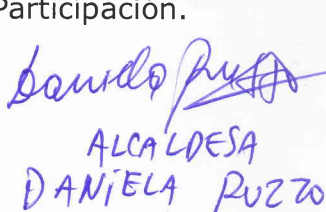 Participación.
Daniela Ruzzo
ALCALDESA
DANIELA RUZZO